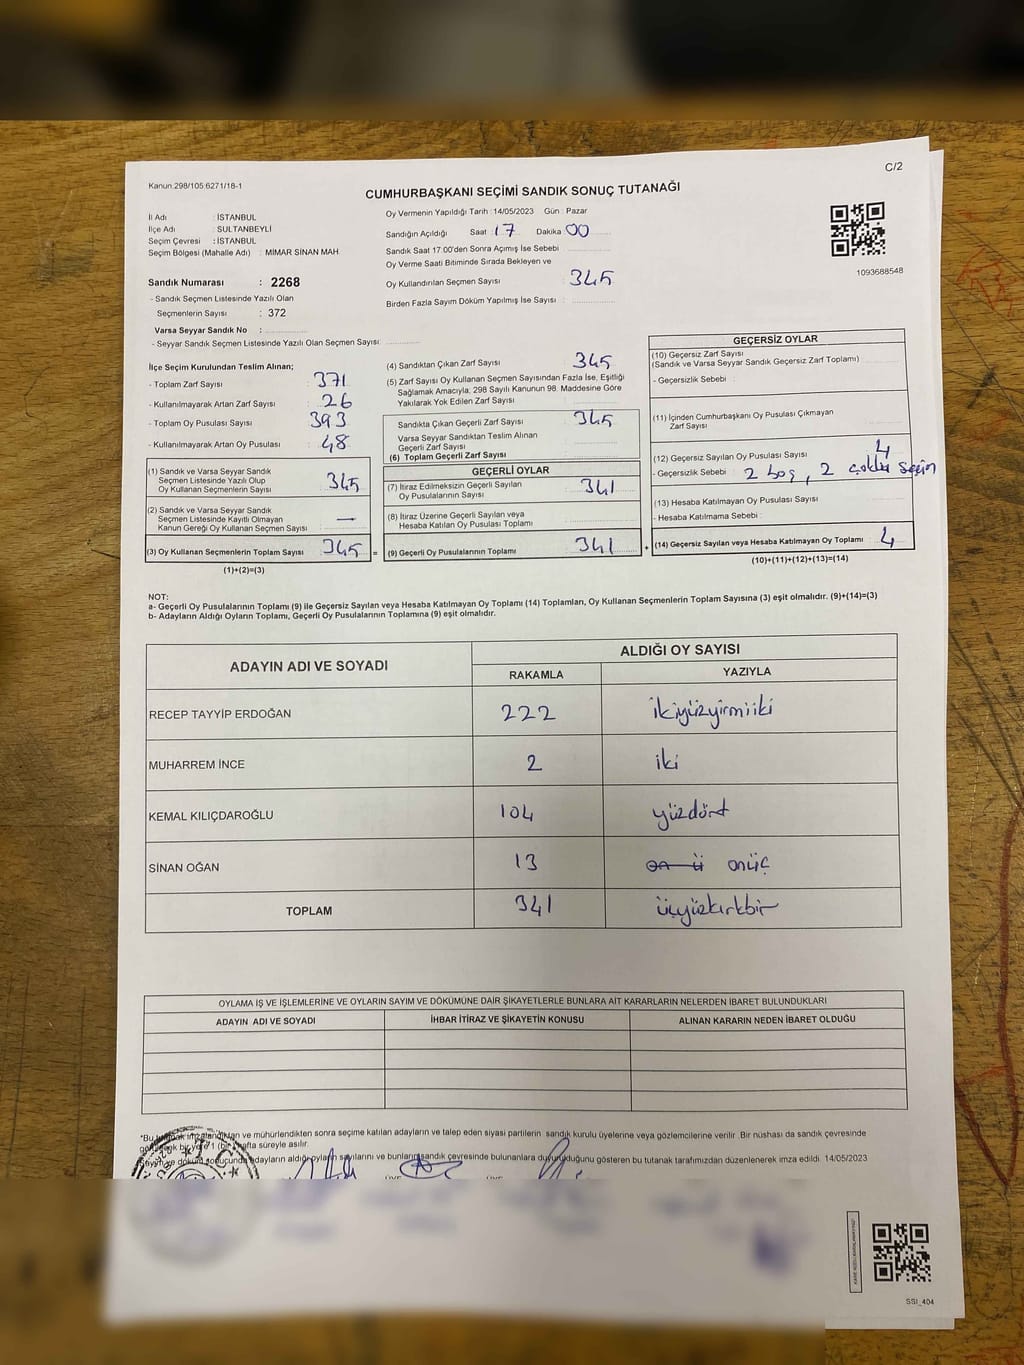 C/2
Kanun 298/105 6271/18-1
CUMHURBAŞKANI SEÇİMİ SANDIK SONUÇ TUTANAĞI
İl Adı : İSTANBUL
İlçe Adı : SULTANBEYLİ
Seçim Çevresi : İSTANBUL
Seçim Bölgesi (Mahalle Adı) : MİMAR SİNAN MAH
Sandık Numarası : 2268
- Sandık Seçmen Listesinde Yazılı Olan
Seçmenlerin Sayısı : 372
Varsa Seyyar Sandık No :
- Seyyar Sandık Seçmen Listesinde Yazılı Olan Seçmen Sayısı:
Oy Vermenin Yapıldığı Tarih : 14/05/2023 Gün : Pazar
Sandığın Açıldığı Saat 17 Dakika 00
Sandık Saat 17:00'den Sonra Açımış İse Sebebi
Oy Verme Saati Bitiminde Sırada Bekleyen ve
Oy Kullandırılan Seçmen Sayısı : 345
Birden Fazla Sayım Döküm Yapılmış İse Sayısı :
1093688548
İlçe Seçim Kurulundan Teslim Alınan;
- Toplam Zarf Sayısı : 371
- Kullanılmayarak Artan Zarf Sayısı : 26
- Toplam Oy Pusulası Sayısı : 393
- Kullanılmayarak Artan Oy Pusulası : 48
(1) Sandık ve Varsa Seyyar Sandık
Seçmen Listesinde Yazılı Olup
Oy Kullanan Seçmenlerin Sayısı : 345
(2) Sandık ve Varsa Seyyar Sandık
Seçmen Listesinde Kayıtlı Olmayan
Kanun Gereği Oy Kullanan Seçmen Sayısı : —
(3) Oy Kullanan Seçmenlerin Toplam Sayısı : 345 =
(1)+(2)=(3)
(4) Sandıktan Çıkan Zarf Sayısı : 345
(5) Zarf Sayısı Oy Kullanan Seçmen Sayısından Fazla İse, Eşitliği
Sağlamak Amacıyla; 298 Sayılı Kanunun 98. Maddesine Göre
Yakılarak Yok Edilen Zarf Sayısı :
Sandıkta Çıkan Geçerli Zarf Sayısı : 345
Varsa Seyyar Sandıktan Teslim Alınan
Geçerli Zarf Sayısı :
(6) Toplam Geçerli Zarf Sayısı :
GEÇERLİ OYLAR
(7) İtiraz Edilmeksizin Geçerli Sayılan
Oy Pusulalarının Sayısı : 341
(8) İtiraz Üzerine Geçerli Sayılan veya
Hesaba Katılan Oy Pusulası Toplamı :
(9) Geçerli Oy Pusulalarının Toplamı : 341 +
GEÇERSİZ OYLAR
(10) Geçersiz Zarf Sayısı
(Sandık ve Varsa Seyyar Sandık Geçersiz Zarf Toplamı) :
- Geçersizlik Sebebi :
(11) İçinden Cumhurbaşkanı Oy Pusulası Çıkmayan
Zarf Sayısı :
(12) Geçersiz Sayılan Oy Pusulası Sayısı : 4
- Geçersizlik Sebebi : 2 boş, 2 çoklu seçim
(13) Hesaba Katılmayan Oy Pusulası Sayısı :
- Hesaba Katılmama Sebebi :
(14) Geçersiz Sayılan veya Hesaba Katılmayan Oy Toplamı : 4
(10)+(11)+(12)+(13)=(14)
NOT:
a- Geçerli Oy Pusulalarının Toplamı (9) ile Geçersiz Sayılan veya Hesaba Katılmayan Oy Toplamı (14) Toplamları, Oy Kullanan Seçmenlerin Toplam Sayısına (3) eşit olmalıdır. (9)+(14)=(3)
b- Adayların Aldığı Oyların Toplamı, Geçerli Oy Pusulalarının Toplamına (9) eşit olmalıdır.
ADAYIN ADI VE SOYADI ALDIĞI OY SAYISI
RAKAMLA YAZIYLA
RECEP TAYYİP ERDOĞAN 222 ikiyüzyirmiiki
MUHARREM İNCE 2 iki
KEMAL KILIÇDAROĞLU 104 yüzdört
SİNAN OĞAN 13 on ü onüç
TOPLAM 341 üçyüzkırkbir
OYLAMA İŞ VE İŞLEMLERİNE VE OYLARIN SAYIM VE DÖKÜMÜNE DAİR ŞİKAYETLERLE BUNLARA AİT KARARLARIN NELERDEN İBARET BULUNDUKLARI
ADAYIN ADI VE SOYADI İHBAR İTİRAZ VE ŞİKAYETİN KONUSU ALINAN KARARIN NEDEN İBARET OLDUĞU
*Bu tutanak imzalandıktan ve mühürlendikten sonra seçime katılan adayların ve talep eden siyasi partilerin sandık kurulu üyelerine veya gözlemcilerine verilir. Bir nüshası da sandık çevresinde
bir yere 1 (bir) hafta süreyle asılır.
Sayım ve döküm sonucunda adayların aldığı oyların sayılarını ve bunların sandık çevresinde bulunanlara duyurulduğunu gösteren bu tutanak tarafımızdan düzenlenerek imza edildi. 14/05/2023
SSI_404